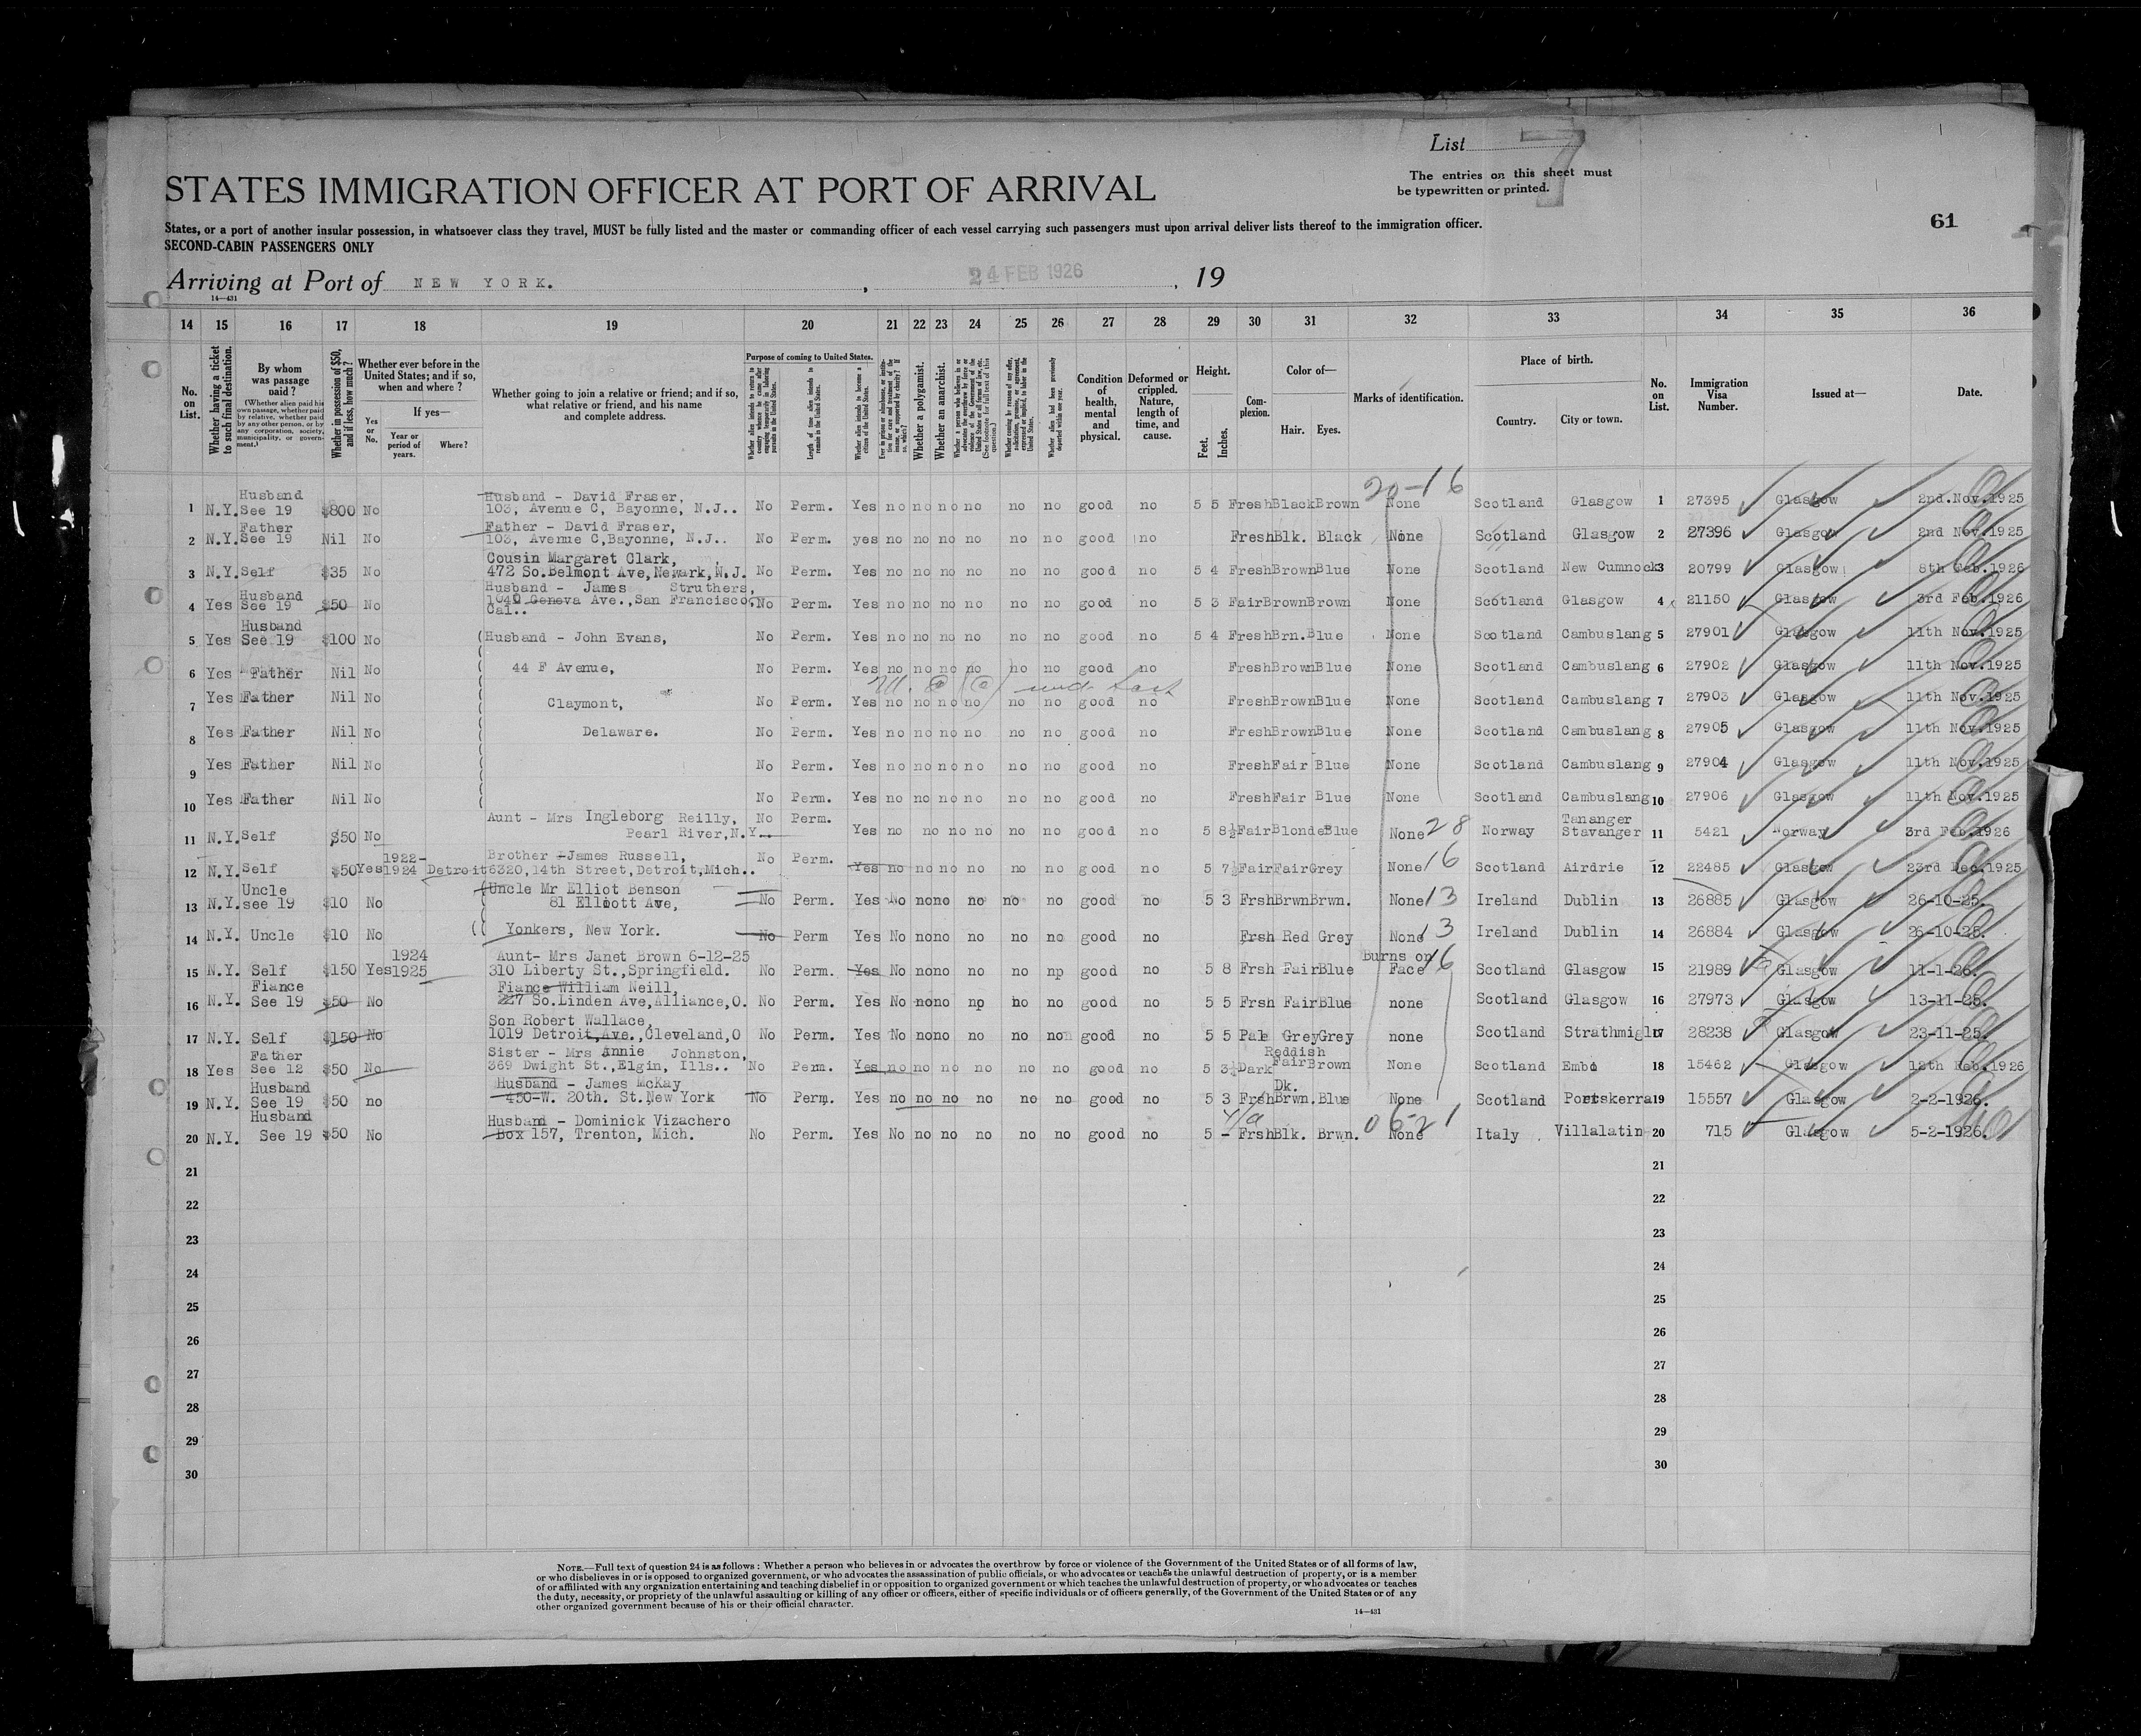 List 7
The entries on this sheet must
be typewritten or printed.
STATES IMMIGRATION OFFICER AT PORT OF ARRIVAL
61
States, or a port of another insular possession, in whatsoever class they travel, MUST be fully listed and the master or commanding officer of each vessel carrying such passengers must upon arrival deliver lists thereof to the immigration officer.
SECOND-CABIN PASSENGERS ONLY
Arriving at Port of NEW YORK. , 24 FEB 1926 , 19
14—431
14 15 16 17 18 19 20 21 22 23 24 25 26 27 28 29 30 31 32 33 34 35 36
No. on List.
Whether having a ticket to such final destination.
By whom was passage paid?
(Whether alien paid his own passage, whether paid by relative, whether paid by any other person, or by any corporation, society, municipality, or government.)
Whether in possession of $50, and if less, how much?
Whether ever before in the United States; and if so, when and where?
Yes or No.
If yes—
Year or period of years.
Where?
Whether going to join a relative or friend; and if so, what relative or friend, and his name and complete address.
Purpose of coming to United States.
Whether alien intends to return to country whence he came after engaging temporarily in laboring pursuits in the United States.
Length of time alien intends to remain in the United States.
Whether alien intends to become a citizen of the United States.
Whether a polygamist.
Whether an anarchist.
Condition of health, mental and physical.
Deformed or crippled. Nature, length of time, and cause.
Height.
Feet.
Inches.
Complexion.
Color of—
Hair.
Eyes.
Marks of identification.
Place of birth.
Country.
City or town.
No. on List.
Immigration Visa Number.
Issued at—
Date.
20-16
1 N.Y. Husband See 19 $800 No Husband - David Fraser, 103, Avenue C, Bayonne, N.J.. No Perm. Yes no no no no no no good no 5 5 Fresh Black Brown None Scotland Glasgow 1 27395 Glasgow 2nd.Nov.1925
2 N.Y. Father See 19 Nil No Father - David Fraser, 103, Avenue C,Bayonne, N.J.. No Perm. yes no no no no no no good no Fresh Blk. Black None Scotland Glasgow 2 27396 Glasgow 2nd Nov.1925
3 N.Y. Self $35 No Cousin Margaret Clark, 472 So.Belmont Ave,Newark,N.J. No Perm. Yes no no no no no no good no 5 4 Fresh Brown Blue None Scotland New Cumnock 3 20799 Glasgow 8th Feb.1926
4 Yes Husband See 19 $50 No Husband - James Struthers, 1040 Geneva Ave.,San Francisco, Cal.. No Perm. Yes no no no no no no good no 5 3 Fair Brown Brown None Scotland Glasgow 4 21150 Glasgow 3rd Feb.1926
5 Yes Husband See 19 $100 No Husband - John Evans, No Perm. Yes no no no no no no good no 5 4 Fresh Brn. Blue None Scotland Cambuslang 5 27901 Glasgow 11th Nov.1925
6 Yes Father Nil No 44 F Avenue, No Perm. Yes no no no no no no good no Fresh Brown Blue None Scotland Cambuslang 6 27902 Glasgow 11th Nov.1925
7 Yes Father Nil No Claymont, No Perm. Yes no no no no no no good no Fresh Brown Blue None Scotland Cambuslang 7 27903 Glasgow 11th Nov.1925
8 Yes Father Nil No Delaware. No Perm. Yes no no no no no no good no Fresh Brown Blue None Scotland Cambuslang 8 27905 Glasgow 11th Nov.1925
9 Yes Father Nil No No Perm. Yes no no no no no no good no Fresh Fair Blue None Scotland Cambuslang 9 27904 Glasgow 11th Nov.1925
10 Yes Father Nil No No Perm. Yes no no no no no no good no Fresh Fair Blue None Scotland Cambuslang 10 27906 Glasgow 11th Nov.1925
11 N.Y. Self $50 No Aunt - Mrs Ingleborg Reilly, Pearl River,N.Y. No Perm. Yes no no no no no no good no 5 8½ Fair Blonde Blue None 28 Norway Tananger Stavanger 11 5421 Norway 3rd Feb.1926
12 N.Y. Self $50 Yes 1922-1924 Detroit Brother -James Russell, 6320,14th Street,Detroit,Mich.. No Perm. Yes no no no no no no good no 5 7½ Fair Fair Grey None 16 Scotland Airdrie 12 22485 Glasgow 23rd Dec.1925
13 N.Y. Uncle see 19 $10 No Uncle Mr Elliot Benson 81 Elliott Ave, No Perm. Yes No no no no no no good no 5 3 Frsh Brwn Brwn. None 13 Ireland Dublin 13 26885 Glasgow 26-10-25.
14 N.Y. Uncle $10 No Yonkers, New York. No Perm Yes No no no no no no good no Frsh Red Grey None 13 Ireland Dublin 14 26884 Glasgow 26-10-25.
15 N.Y. Self $150 Yes 1924 1925 Aunt- Mrs Janet Brown 6-12-25 310 Liberty St.,Springfield. No Perm. Yes No no no no no np good no 5 8 Frsh Fair Blue Burns on Face 16 Scotland Glasgow 15 21989 Glasgow 11-1-26.
16 N.Y. Fiance See 19 $50 No Fiance William Neill, 227 So.Linden Ave,Alliance,O. No Perm. Yes No no no np no no good no 5 5 Frsh Fair Blue none Scotland Glasgow 16 27973 Glasgow 13-11-25.
17 N.Y. Self $150 No Son Robert Wallace, 1019 Detroit,Ave.,Cleveland,O No Perm. Yes No no no no no no good no 5 5 Pale Grey Grey none Scotland Strathmiglo 17 28238 Glasgow 23-11-25.
18 Yes Father See 12 $50 No Sister - Mrs Annie Johnston, 369 Dwight St.,Elgin, Ills.. No Perm. Yes no no no no no no good no 5 3½ Dark Reddish Fair Brown None Scotland Embo 18 15462 Glasgow 12th Feb.1926
19 N.Y. Husband See 19 $50 no Husband - James McKay 450-W. 20th. St.New York No Perm. Yes no no no no no no good no 5 3 Frsh Dk. Brwn. Blue None Scotland Portskerra 19 15557 Glasgow 2-2-1926.
20 N.Y. Husband See 19 $50 No Husband - Dominick Vizachero Box 157, Trenton, Mich. No Perm. Yes No no no no no no good no 5 - Frsh Blk. Brwn. None Italy Villalatin 20 715 Glasgow 5-2-1926.
21 21
22 22
23 23
24 24
25 25
26 26
27 27
28 28
29 29
30 30
NOTE.—Full text of question 24 is as follows: Whether a person who believes in or advocates the overthrow by force or violence of the Government of the United States or of all forms of law,
or who disbelieves in or is opposed to organized government, or who advocates the assassination of public officials, or who advocates or teaches the unlawful destruction of property, or is a member
of or affiliated with any organization entertaining and teaching disbelief in or opposition to organized government or which teaches the unlawful destruction of property, or who advocates or teaches
the duty, necessity, or propriety of the unlawful assaulting or killing of any officer or officers, either of specific individuals or of officers generally, of the Government of the United States or of any
other organized government because of his or their official character.
14—431